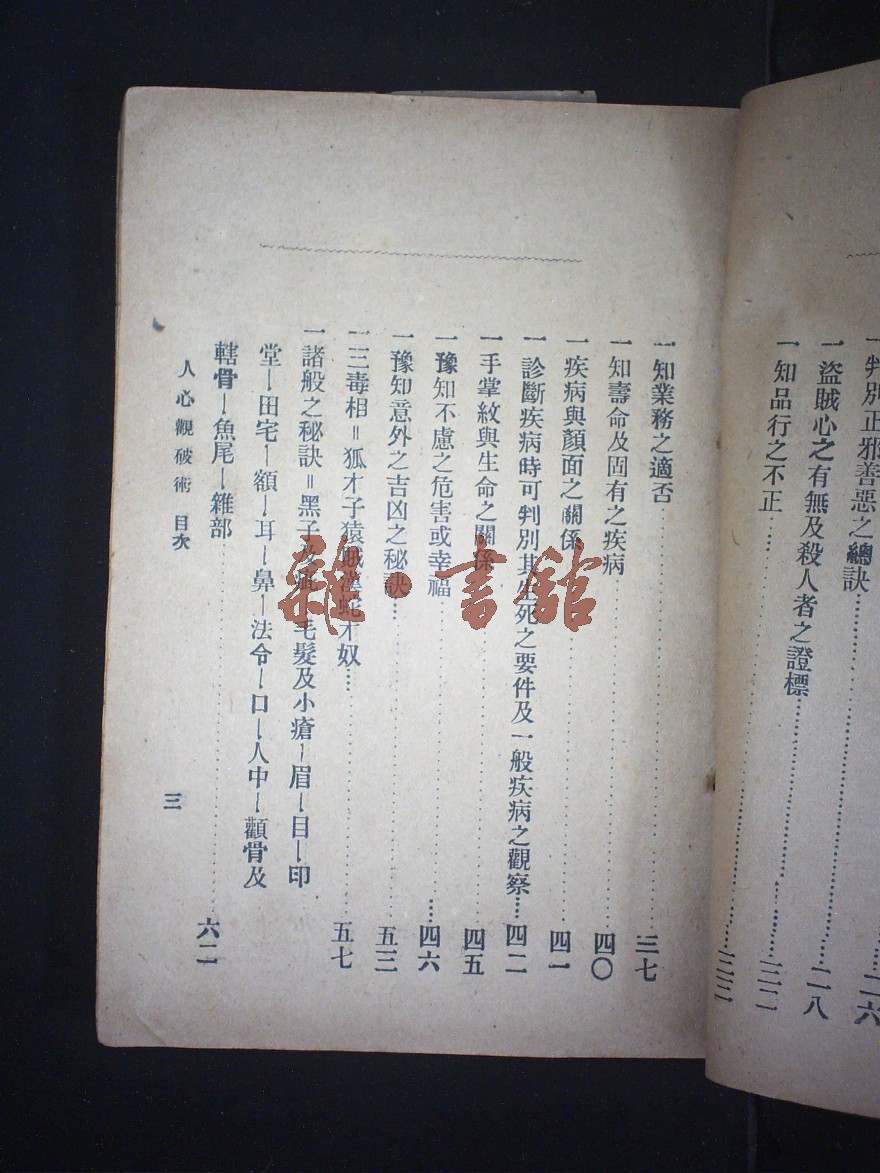 一判別正邪善惡之總訣……二六
一盜賊心之有無及殺人者之證標……二八
一知品行之不正……三二
一知業務之適否……三七
一知壽命及固有之疾病……四〇
一疾病與顏面之關係……四一
一診斷疾病時可判別其生死之要件及一般疾病之觀察……四二
一手掌紋與生命之關係……四五
一豫知不慮之危害或幸福……四六
一豫知意外之吉凶之秘訣……五三
一三毒相=狐才子猿賊漢蛇才奴……五七
一諸般之秘訣=黑子及 毛髮及小瘡—眉—目—印
堂—田宅—額—耳—鼻—法令—口—人中—顴骨及
轄骨—魚尾—雜部……六二
人心觀破術 目次
三
雜·書館